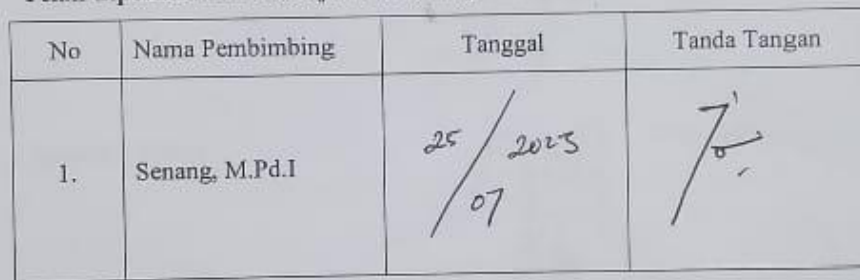 No Nama Pembimbing Tanggal Tanda Tangan
1. Senang, M.Pd.I 25/07 2023